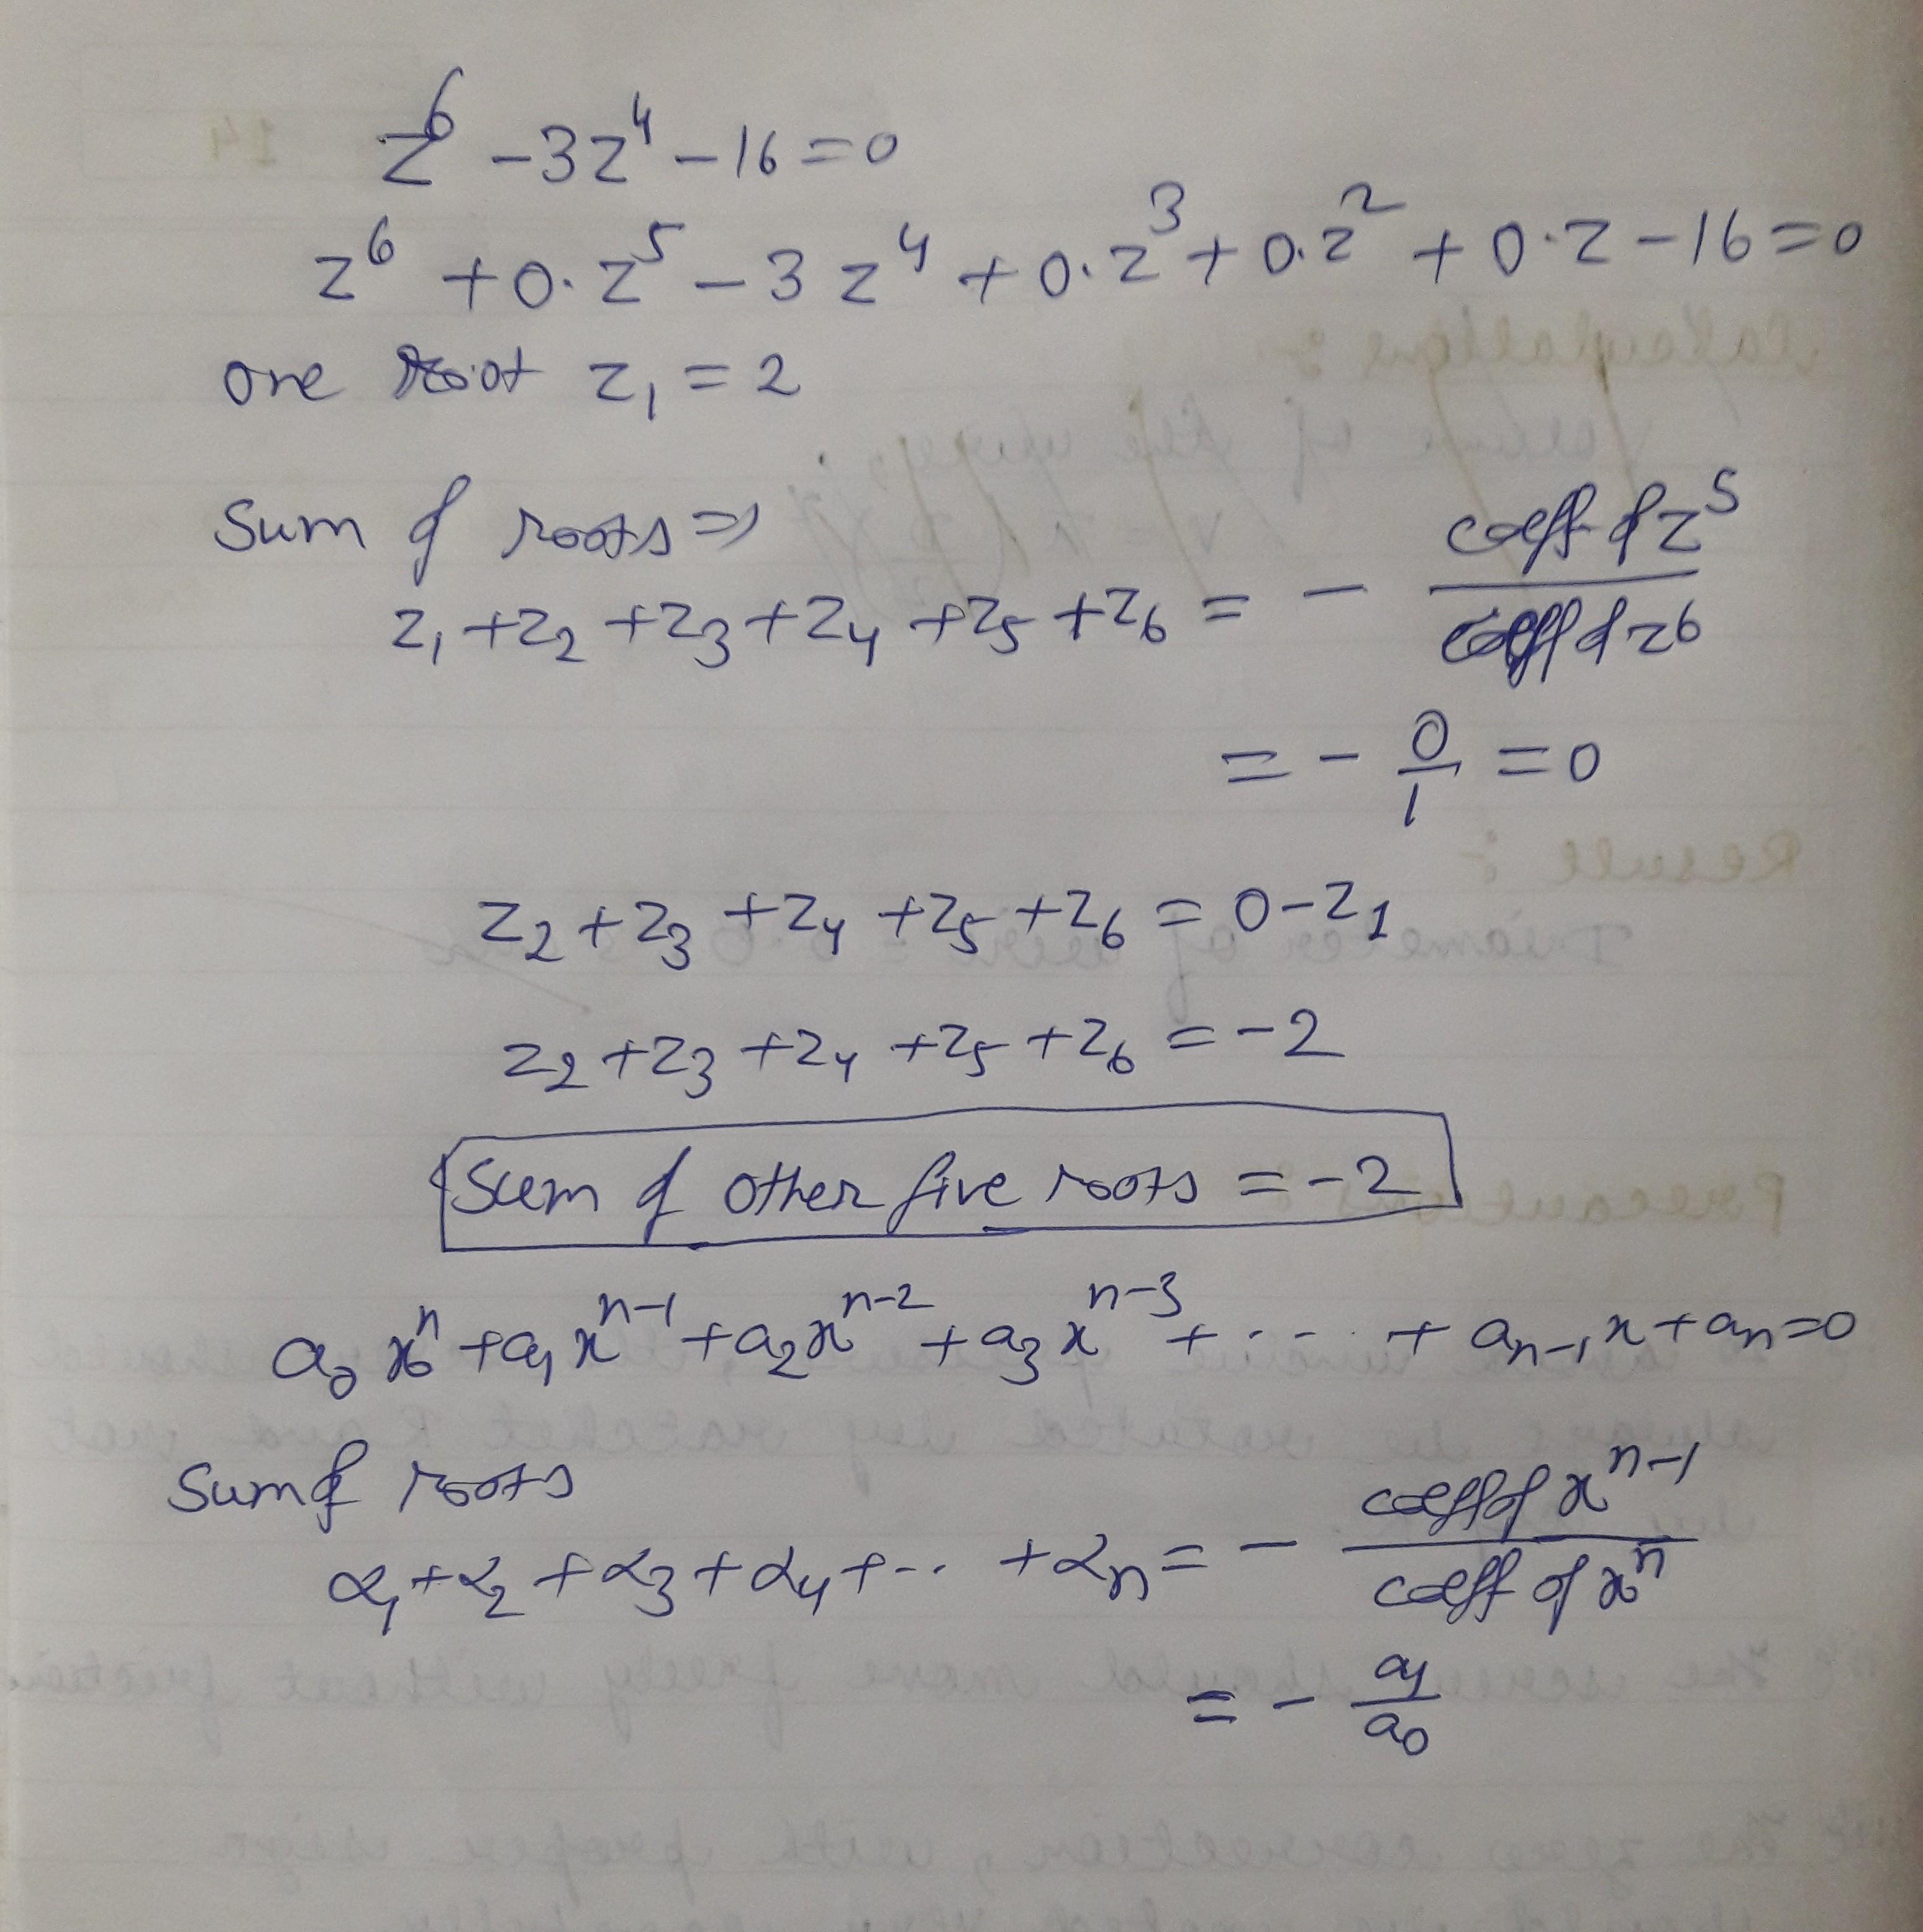 z⁶ - 3z⁴ - 16 = 0
z⁶ + 0·z⁵ - 3z⁴ + 0·z³ + 0·z² + 0·z - 16 = 0
one root z₁ = 2
Sum of roots ⇒
z₁ + z₂ + z₃ + z₄ + z₅ + z₆ = - coeff of z⁵ / coeff of z⁶
= - 0/1 = 0
z₂ + z₃ + z₄ + z₅ + z₆ = 0 - z₁
z₂ + z₃ + z₄ + z₅ + z₆ = -2
Sum of other five roots = -2
a₀xⁿ + a₁xⁿ⁻¹ + a₂xⁿ⁻² + a₃xⁿ⁻³ + ... + aₙ₋₁x + aₙ = 0
Sum of roots
α₁ + α₂ + α₃ + α₄ + ... + αₙ = - coeff of xⁿ⁻¹ / coeff of xⁿ
= - a₁/a₀